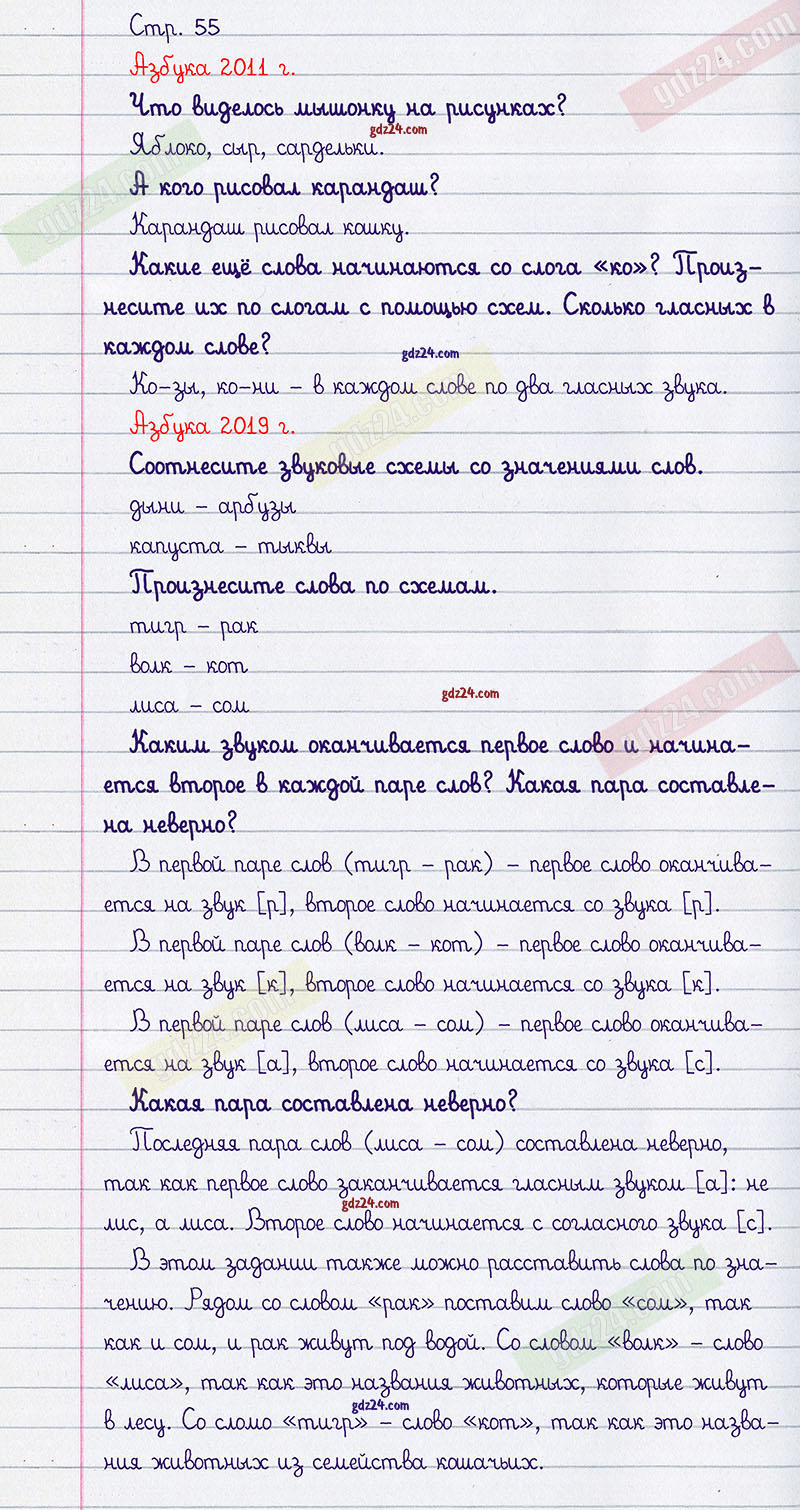 Стр. 55
Азбука 2011 г.
Что виделось мышонку на рисунках?
gdz24.com
Яблоко, сыр, сардельки.
А кого рисовал карандаш?
Карандаш рисовал кошку.
Какие ещё слова начинаются со слога «ко»? Произ-
несите их по слогам с помощью схем. Сколько гласных в
каждом слове?
gdz24.com
Ко-зы, ко-ни – в каждом слове по два гласных звука.
Азбука 2019 г.
Соотнесите звуковые схемы со значениями слов.
дыни – арбузы
капуста – тыквы
Произнесите слова по схемам.
тигр – рак
волк – кот
лиса – сом
gdz24.com
Каким звуком оканчивается первое слово и начина-
ется второе в каждой паре слов? Какая пара составле-
на неверно?
В первой паре слов (тигр – рак) – первое слово оканчива-
ется на звук [р], второе слово начинается со звука [р].
В первой паре слов (волк – кот) – первое слово оканчива-
ется на звук [к], второе слово начинается со звука [к].
В первой паре слов (лиса – сом) – первое слово оканчива-
ется на звук [а], второе слово начинается со звука [с].
Какая пара составлена неверно?
Последняя пара слов (лиса – сом) составлена неверно,
так как первое слово заканчивается гласным звуком [а]: не
gdz24.com
лис, а лиса. Второе слово начинается с согласного звука [с].
В этом задании также можно расставить слова по зна-
чению. Рядом со словом «рак» поставим слово «сом», так
как и сом, и рак живут под водой. Со словом «волк» – слово
«лиса», так как это названия животных, которые живут
gdz24.com
в лесу. Со сломо «тигр» – слово «кот», так как это назва-
ния животных из семейства кошачьих.
gdz24.com
gdz24.com
gdz24.com
gdz24.com
gdz24.com
gdz24.com